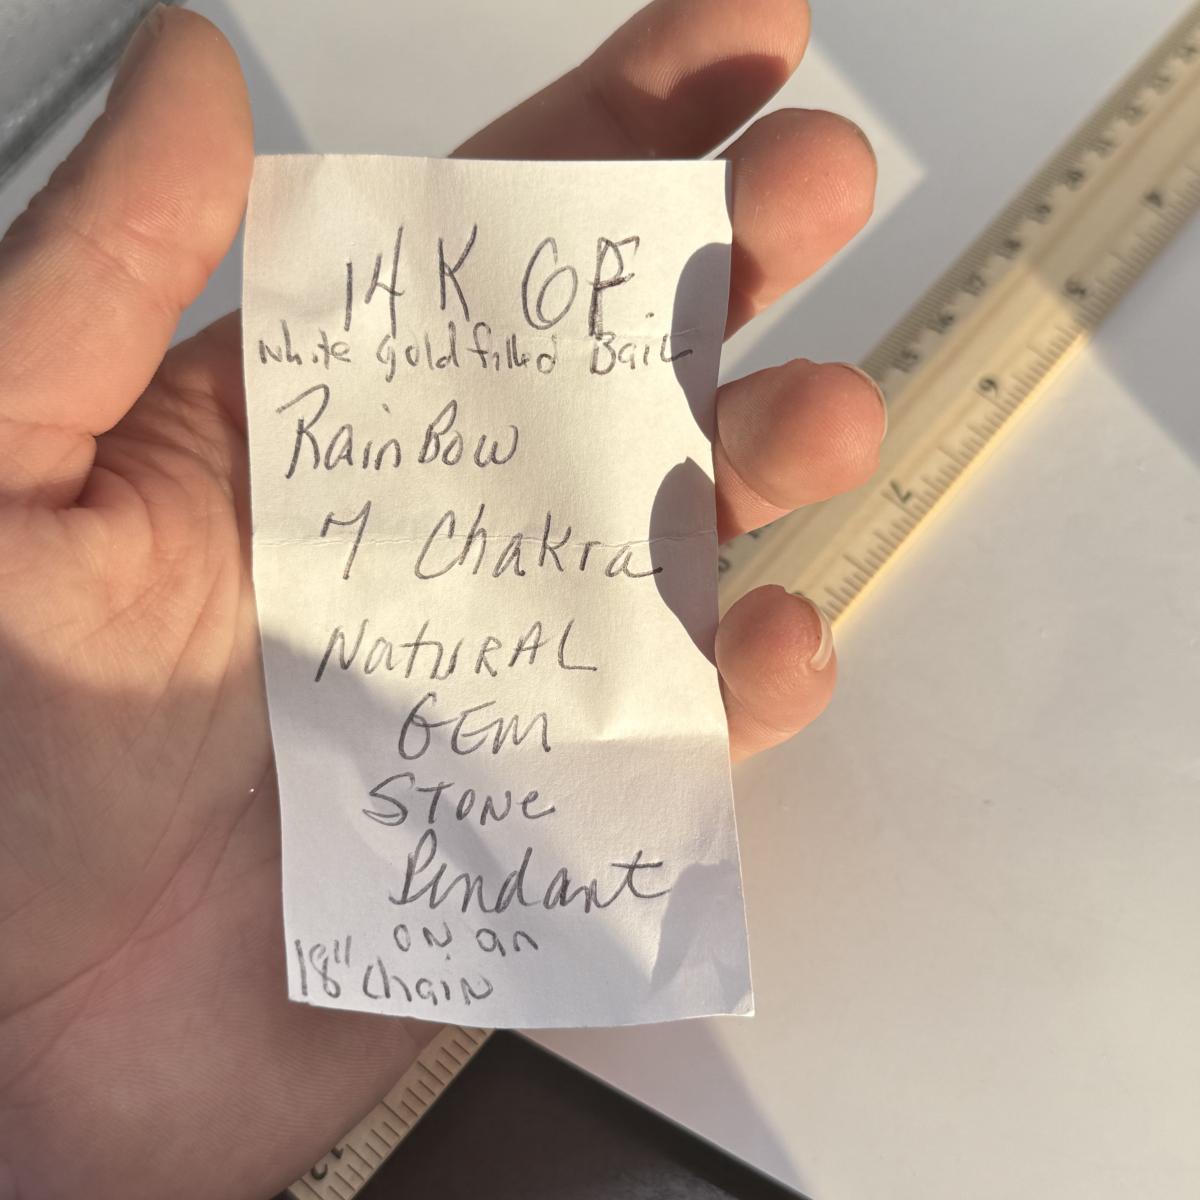 14K GF.
white gold filled Bail
RainBow
7 Chakra
NatURAL
GEM
STONe
Pendant
ON an
18" chaiN
15
16
17
18
19
20
21
22
4
5
6
7
12